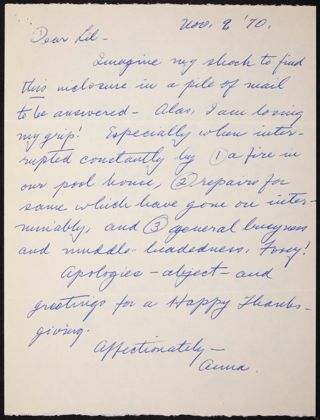 Nov. 9 '70.
Dear Lil -
Imagine my shock to find
this inclosure in a pile of mail
to be answered - Alas, I am losing
my grip! Especially when inter-
rupted constantly by ① a fire in
our pool house, ② repairs for
same which have gone on inter-
minably, and ③ general busyness
and muddle-headedness. Foey!
Apologies - abject - and
greetings for a Happy Thanks-
giving.
Affectionately -
Anna.